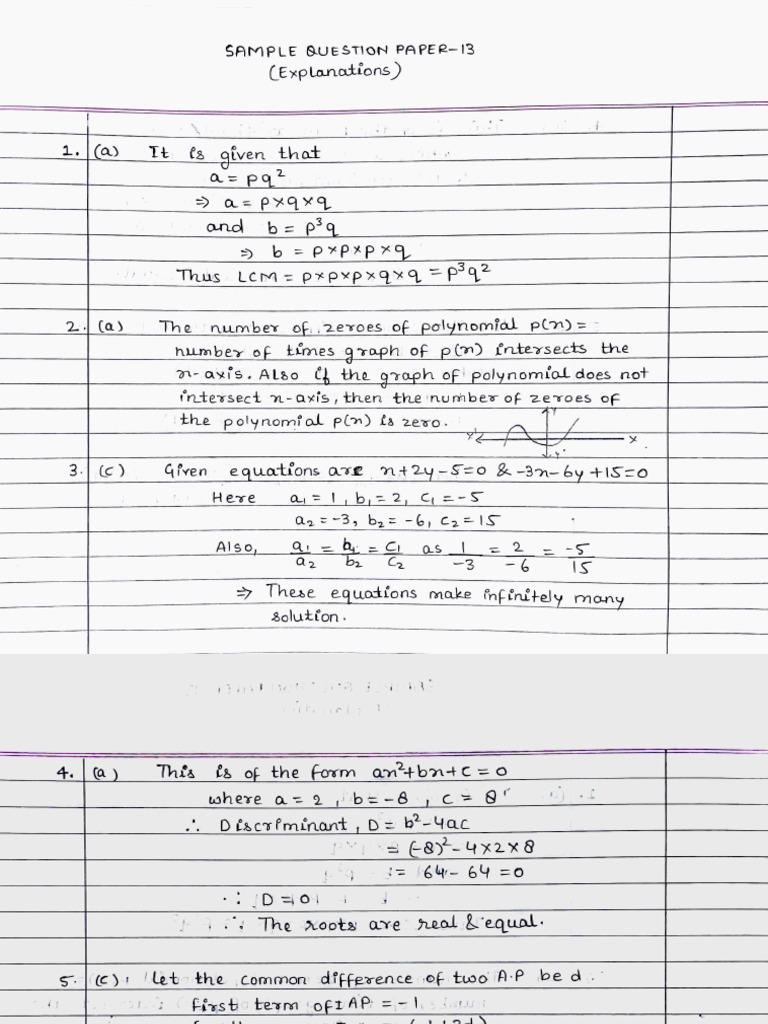 SAMPLE QUESTION PAPER-13
(Explanations)
1. (a) It is given that
a = pq²
⇒ a = p×q×q
and b = p³q
⇒ b = p×p×p×q
Thus LCM = p×p×p×q×q = p³q²
2. (a) The number of zeroes of polynomial p(x) =
number of times graph of p(x) intersects the
x-axis. Also if the graph of polynomial does not
intersect x-axis, then the number of zeroes of
the polynomial p(x) is zero.
Y
X' X
Y'
3. (c) Given equations are x+2y-5=0 & -3x-6y+15=0
Here a₁ = 1, b₁ = 2, c₁ = -5
a₂ = -3, b₂ = -6, c₂ = 15
Also, a₁/a₂ = b₁/b₂ = c₁/c₂ as 1/-3 = 2/-6 = -5/15
⇒ These equations make infinitely many
solution.
4. (a) This is of the form ax²+bx+c = 0
where a = 2, b = -8, c = 8
∴ Discriminant, D = b²-4ac
= (-8)²-4×2×8
= 64-64 = 0
∵ D = 0
∴ The roots are real & equal.
5. (c) Let the common difference of two A.P be d.
first term of I AP = -1